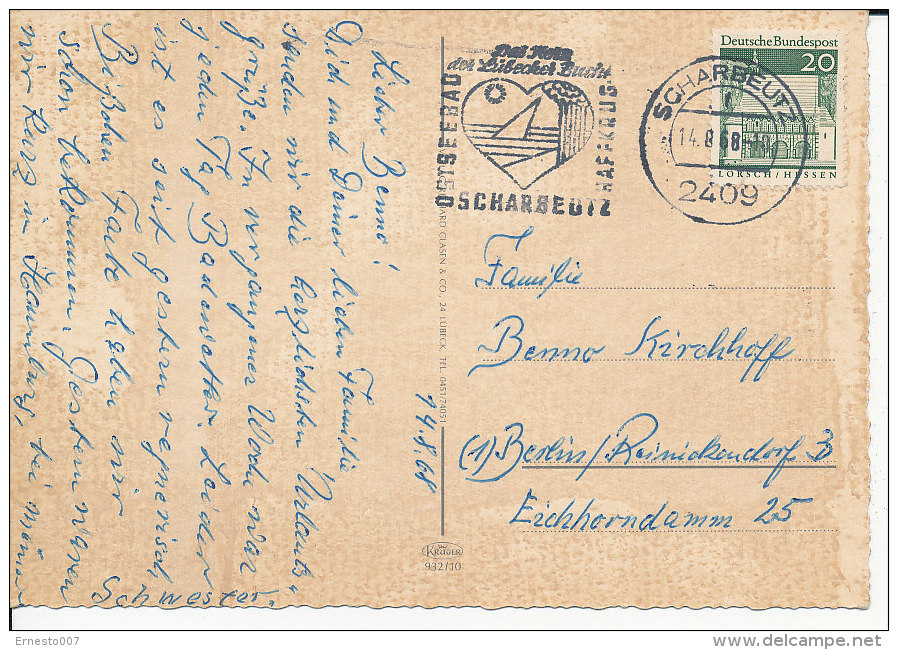 14.8.68
Lieber Benno!
Did und Deiner lieben Familie
senden wir die herzlichsten Urlaubs-
grüße. In vergangener Woche war
jeden Tag Badewetter. Leider
ist es seit gestern regnerisch,
Bißchen Farbe haben wir
schon bekommen. Gestern waren
wir kurz in Hamburg, bei meiner
Schwester.
Das Herz
der Lübecker Bucht
OSTSEEBAD
SCHARBEUTZ
HAFFKRUG
SCHARBEUTZ
14.8.68
2409
Deutsche Bundespost
20
LORSCH/HESSEN
Familie
Benno Kirchhoff
(1) Berlin/Reinickendorf 3
Eichhorndamm 25
CLASEN & CO., 24 LÜBECK, TEL. 0451/74051
KRÜGER
932/10
Ernesto007
delcampe.net